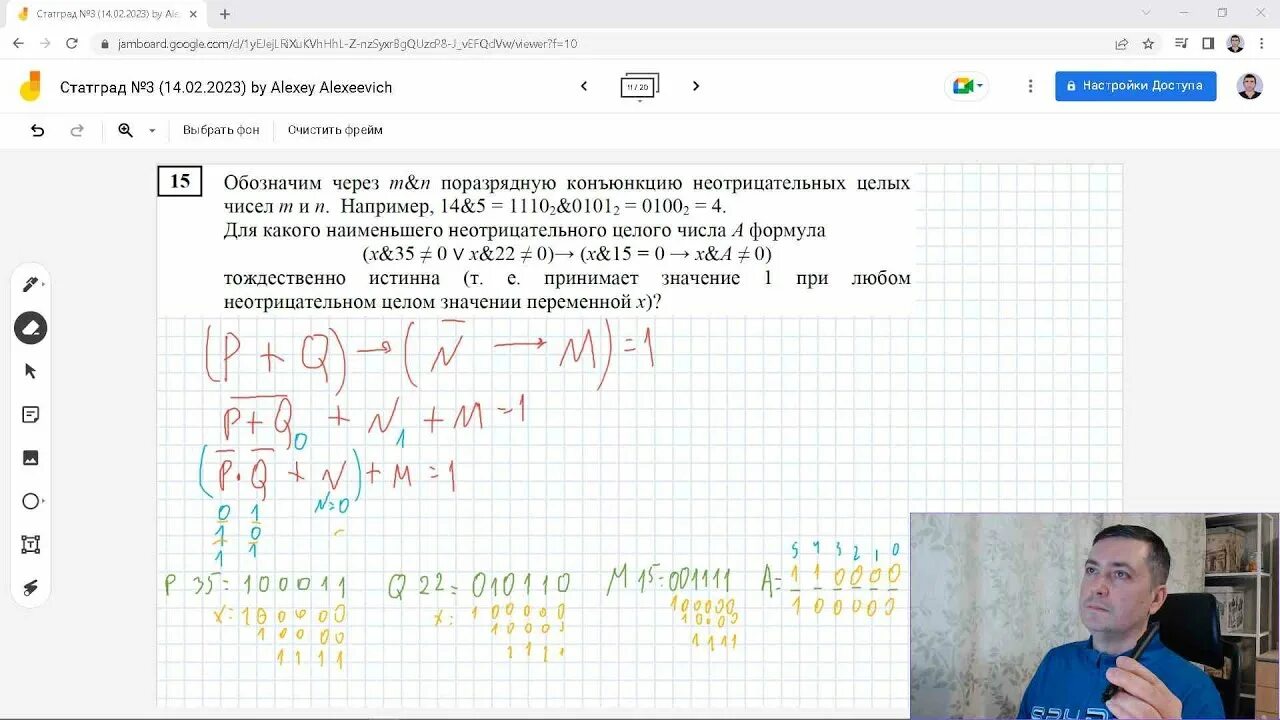 Статград №3 (14.02.2023) by Ale
jamboard.google.com/d/
Статград №3 (14.02.2023) by Alexey Alexeevich
11 / 20
Настройки Доступа
Выбрать фон
Очистить фрейм
15
Обозначим через m&n поразрядную конъюнкцию неотрицательных целых
чисел m и n. Например, 14&5 = 1110₂&0101₂ = 0100₂ = 4.
Для какого наименьшего неотрицательного целого числа A формула
(x&35 ≠ 0 ∨ x&22 ≠ 0)→ (x&15 = 0 → x&A ≠ 0)
тождественно истинна (т. е. принимает значение 1 при любом
неотрицательном целом значении переменной x)?
(P + Q) → (N̅ → M) = 1
P+Q + N + M = 1
0 1
(P̅·Q̅ + N) + M = 1
0 1 N=0
1 0
1 1
5 4 3 2 1 0
P 35=100011 Q 22=010110 M 15=001111 A=110000
x:100000 x:100000 100000 100000
10000 10000 10000
1111 1111